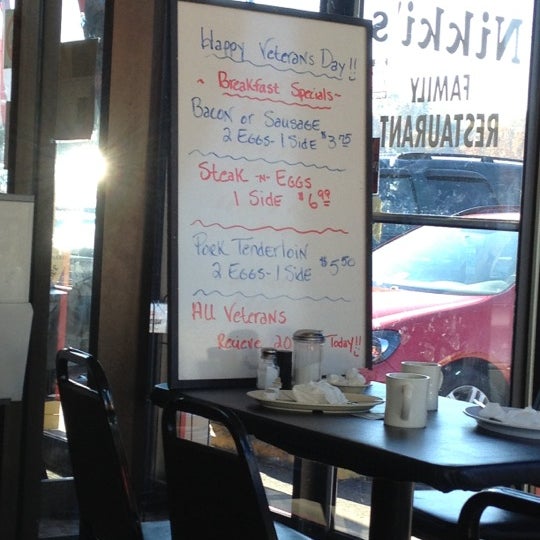 Happy Veterans Day!!
~ Breakfast Specials ~
Bacon or Sausage
2 Eggs - 1 Side $3.75
Steak -n- Eggs
1 Side $6.99
Pork Tenderloin
2 Eggs - 1 Side $5.50
All Veterans
20 Today!!
Nikki's
FAMILY
RESTAURANT